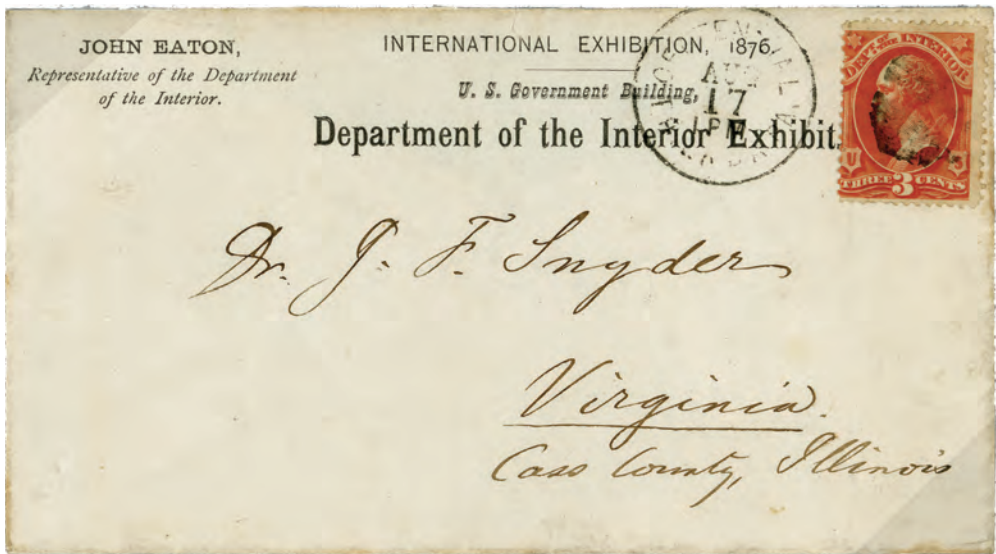 JOHN EATON,
Representative of the Department
of the Interior.
INTERNATIONAL EXHIBITION, 1876.
U. S. Government Building,
Department of the Interior Exhibit.
AUG
17
1PM
DEPT. OF THE INTERIOR
U S
THREE 3 CENTS
Dr. J. F. Snyder
Virginia.
Cass County, Illinois